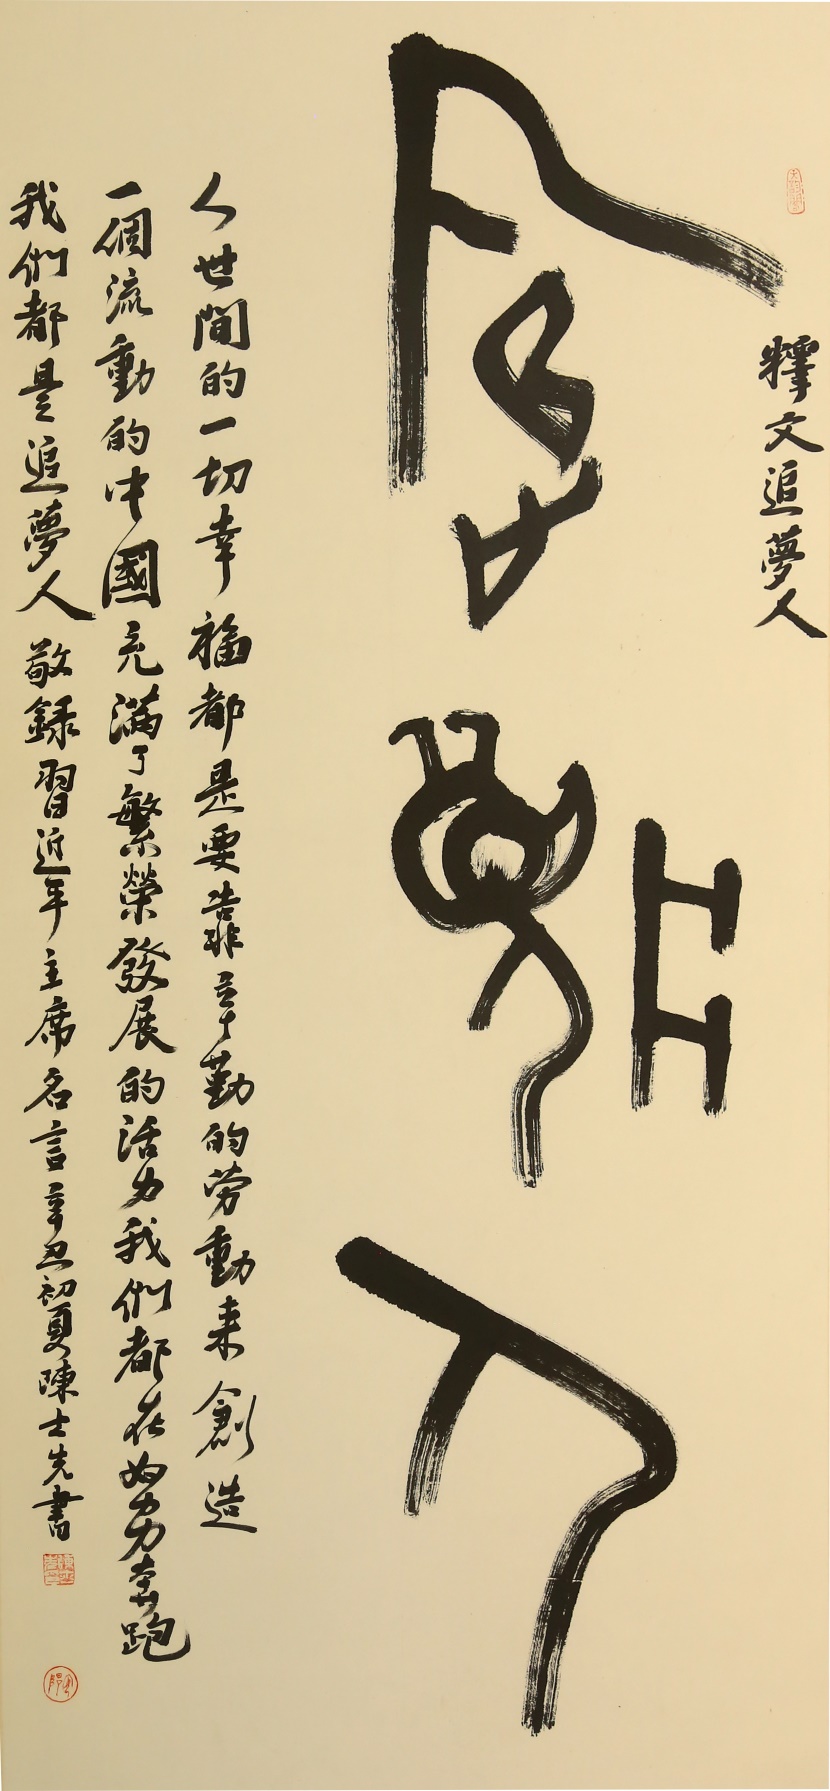 釋文追夢人
追夢人
人世間的一切幸福都是要靠辛勤的勞動来創造
一個流動的中國充滿了繁榮發展的活力我們都在努力奔跑
我們都是追夢人敬録習近平主席名言辛丑初夏陳士先書